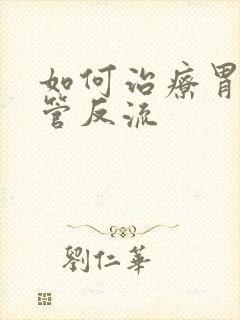 如何治療胃
管反流
劉仁華